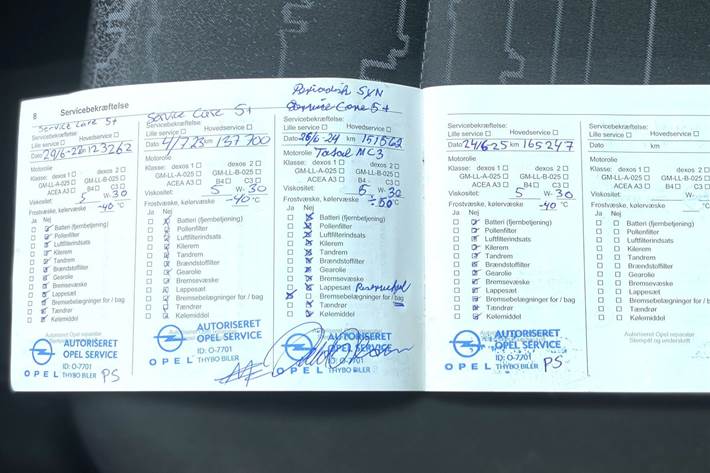 8 Servicebekræftelse
Service Care 5+
Servicebekræftelse:
Lille service Hovedservice
Dato 29/6-22 km 123262
Motorolie
Klasse: dexos 1 dexos 2
GM-LL-A-025 GM-LL-B-025
ACEA A3 B4 C3
Viskositet: 5 W- 30
Frostvæske, kølervæske -40 °C
Ja Nej
Batteri (fjernbetjening)
Pollenfilter
Luftfilterindsats
Kilerem
Tandrem
Brændstoffilter
Gearolie
Bremsevæske
Lappesæt
Bremsebelægninger for / bag
Tændrør
Kølemiddel
Autoriseret Opel reparatør
AUTORISERET
OPEL SERVICE
ID: O-7701
OPEL THYBO BILER PS
Service Care 5+
Servicebekræftelse:
Lille service Hovedservice
Dato 4/7 23 km 137 700
Motorolie
Klasse: dexos 1 dexos 2
GM-LL-A-025 GM-LL-B-025
ACEA A3 B4 C3
Viskositet: 5 W- 30
Frostvæske, kølervæske -40 °C
Ja Nej
Batteri (fjernbetjening)
Pollenfilter
Luftfilterindsats
Kilerem
Tandrem
Brændstoffilter
Gearolie
Bremsevæske
Lappesæt
Bremsebelægninger for / bag
Tændrør
Kølemiddel
AUTORISERET
OPEL SERVICE
ID: O-7701
OPEL THYBO BILER
Periodisk SYN
Service Care 5+
Servicebekræftelse:
Lille service Hovedservice
Dato 26/6-24 km 151562
Motorolie Total MC3
Klasse: dexos 1 dexos 2
GM-LL-A-025 GM-LL-B-025
ACEA A3 B4 C3
Viskositet: 5 W- 30
Frostvæske, kølervæske ÷50 °C
Ja Nej
Batteri (fjernbetjening)
Pollenfilter
Luftfilterindsats
Kilerem
Tandrem
Brændstoffilter
Gearolie
Bremsevæske
Lappesæt
Bremsebelægninger for / bag
Tændrør
Kølemiddel
AUTORISERET
OPEL SERVICE
ID: O-7701
OPEL THYBO BILER
Servicebekræftelse:
Lille service Hovedservice
Dato 24/6-25 km 165247
Motorolie
Klasse: dexos 1 dexos 2
GM-LL-A-025 GM-LL-B-025
ACEA A3 B4 C3
Viskositet: 5 W- 30
Frostvæske, kølervæske -40 °C
Ja Nej
Batteri (fjernbetjening)
Pollenfilter
Luftfilterindsats
Kilerem
Tandrem
Brændstoffilter
Gearolie
Bremsevæske
Lappesæt
Bremsebelægninger for / bag
Tændrør
Kølemiddel
AUTORISERET
OPEL SERVICE
ID: O-7701
OPEL THYBO BILER PS
Servicebekræftelse:
Lille service Hovedservice
Dato km
Motorolie
Klasse: dexos 1 dexos 2
GM-LL-A-025 GM-LL-B-025
ACEA A3 B4 C3
Viskositet: W-
Frostvæske, kølervæske °C
Ja Nej
Batteri (fjernbetjening)
Pollenfilter
Luftfilterindsats
Kilerem
Tandrem
Brændstoffilter
Gearolie
Bremsevæske
Lappesæt
Bremsebelægninger for / bag
Tændrør
Kølemiddel
Autoriseret Opel reparatør
Stempel og underskrift